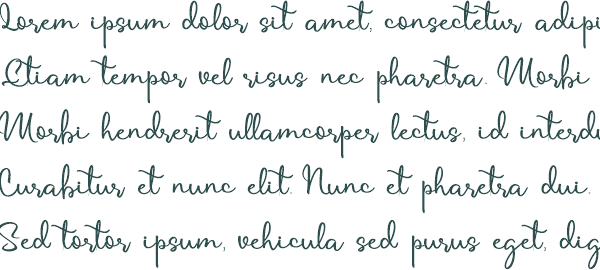 Lorem ipsum dolor sit amet, consectetur adipi
Etiam tempor vel risus nec pharetra. Morbi
Morbi hendrerit ullamcorper lectus, id interdu
Curabitur et nunc elit. Nunc et pharetra dui.
Sed tortor ipsum, vehicula sed purus eget, dig